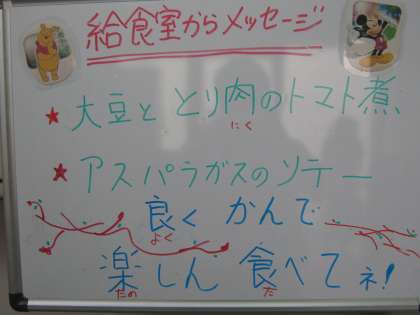 給食室からメッセージ
★大豆ととり肉のトマト煮
にく
★アスパラガスのソテー
良くかんで
よく
楽しん食べてネ!
たの た